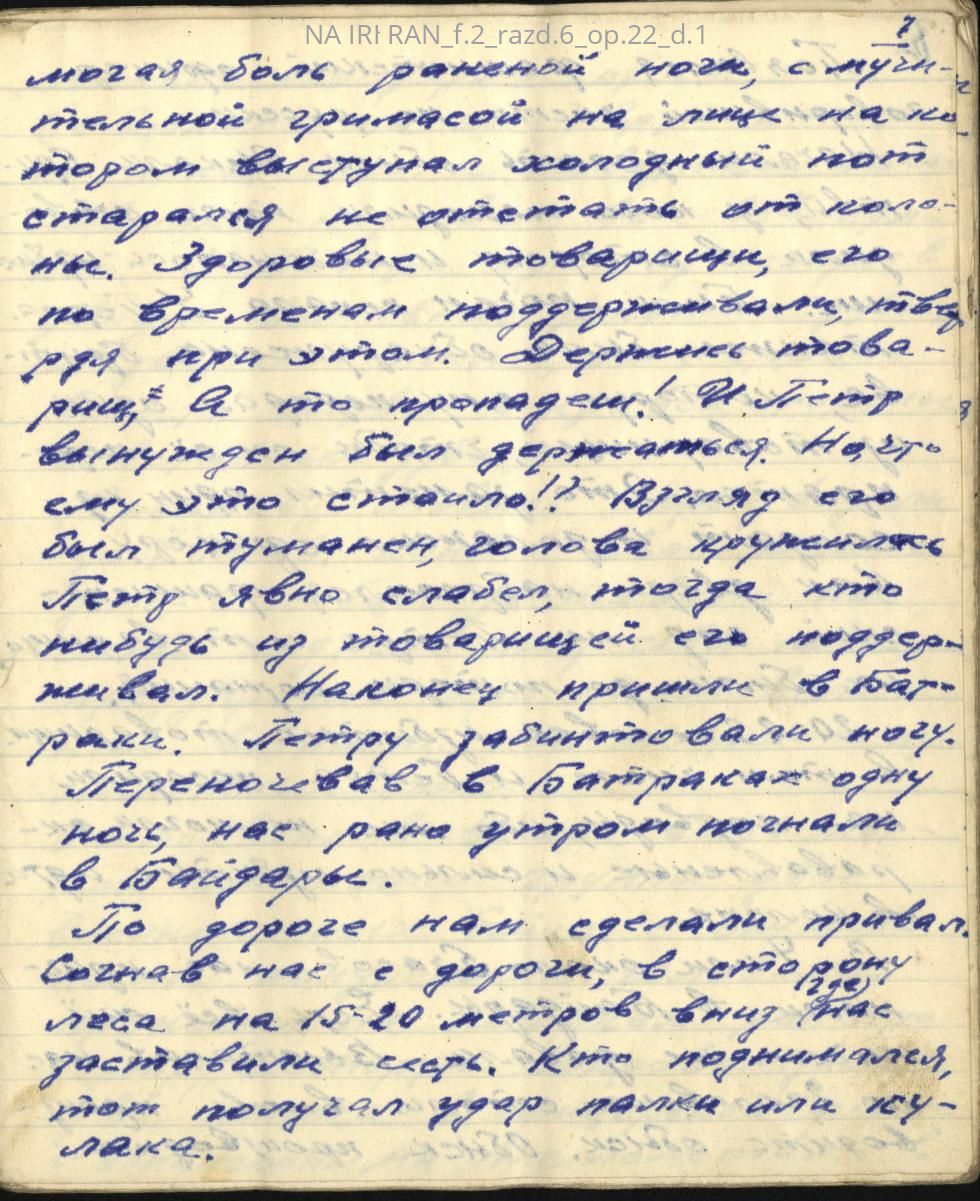 NA IRI RAN_f.2_razd.6_op.22_d.1
7
могая боль раненой ноги, с мучи-
тельной гримасой на лице на ко-
тором выступал холодный пот
старался не отстать от коло-
ны. Здоровые товарищи, его
по временам поддерживали, твер
рдя при этом. Держись това-
рищ, А то пропадеш! И Петр
вынужден был держаться. Но, что
ему это стоило!? Взгляд его
был туманен, голова кружилась
Петр явно слабел, тогда кто
нибудь из товарищей его поддер-
живал. Наконец пришли в Бат-
раки. Петру забинтовали ногу.
Переночевав в Батраках одну
ночь, нас рано утром погнали
в Байдары.
По дороге нам сделали привал.
Согнав нас с дороги, в сторону
леса на 15-20 метров вниз (где) нас
заставили сесть. Кто поднимался,
тот получал удар палки или ку-
лака.